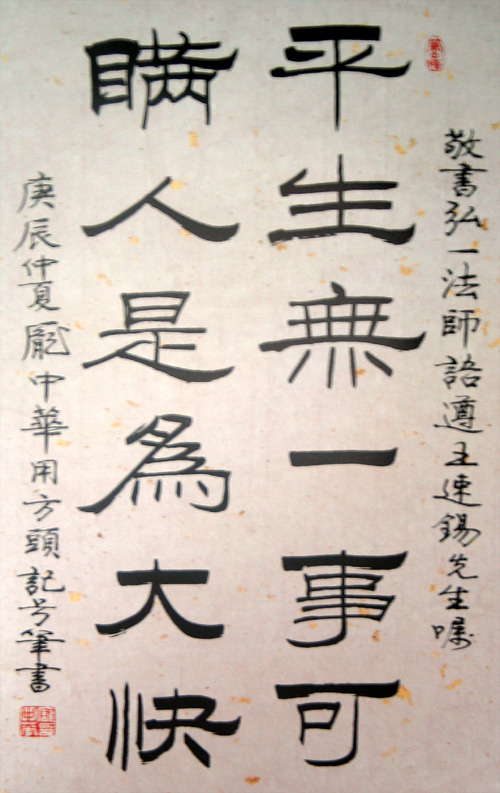 敬書弘一法師語遵王速錫先生囑
平生無一事可
瞞人是為大快
庚辰仲夏龐中華用方頭記号筆書